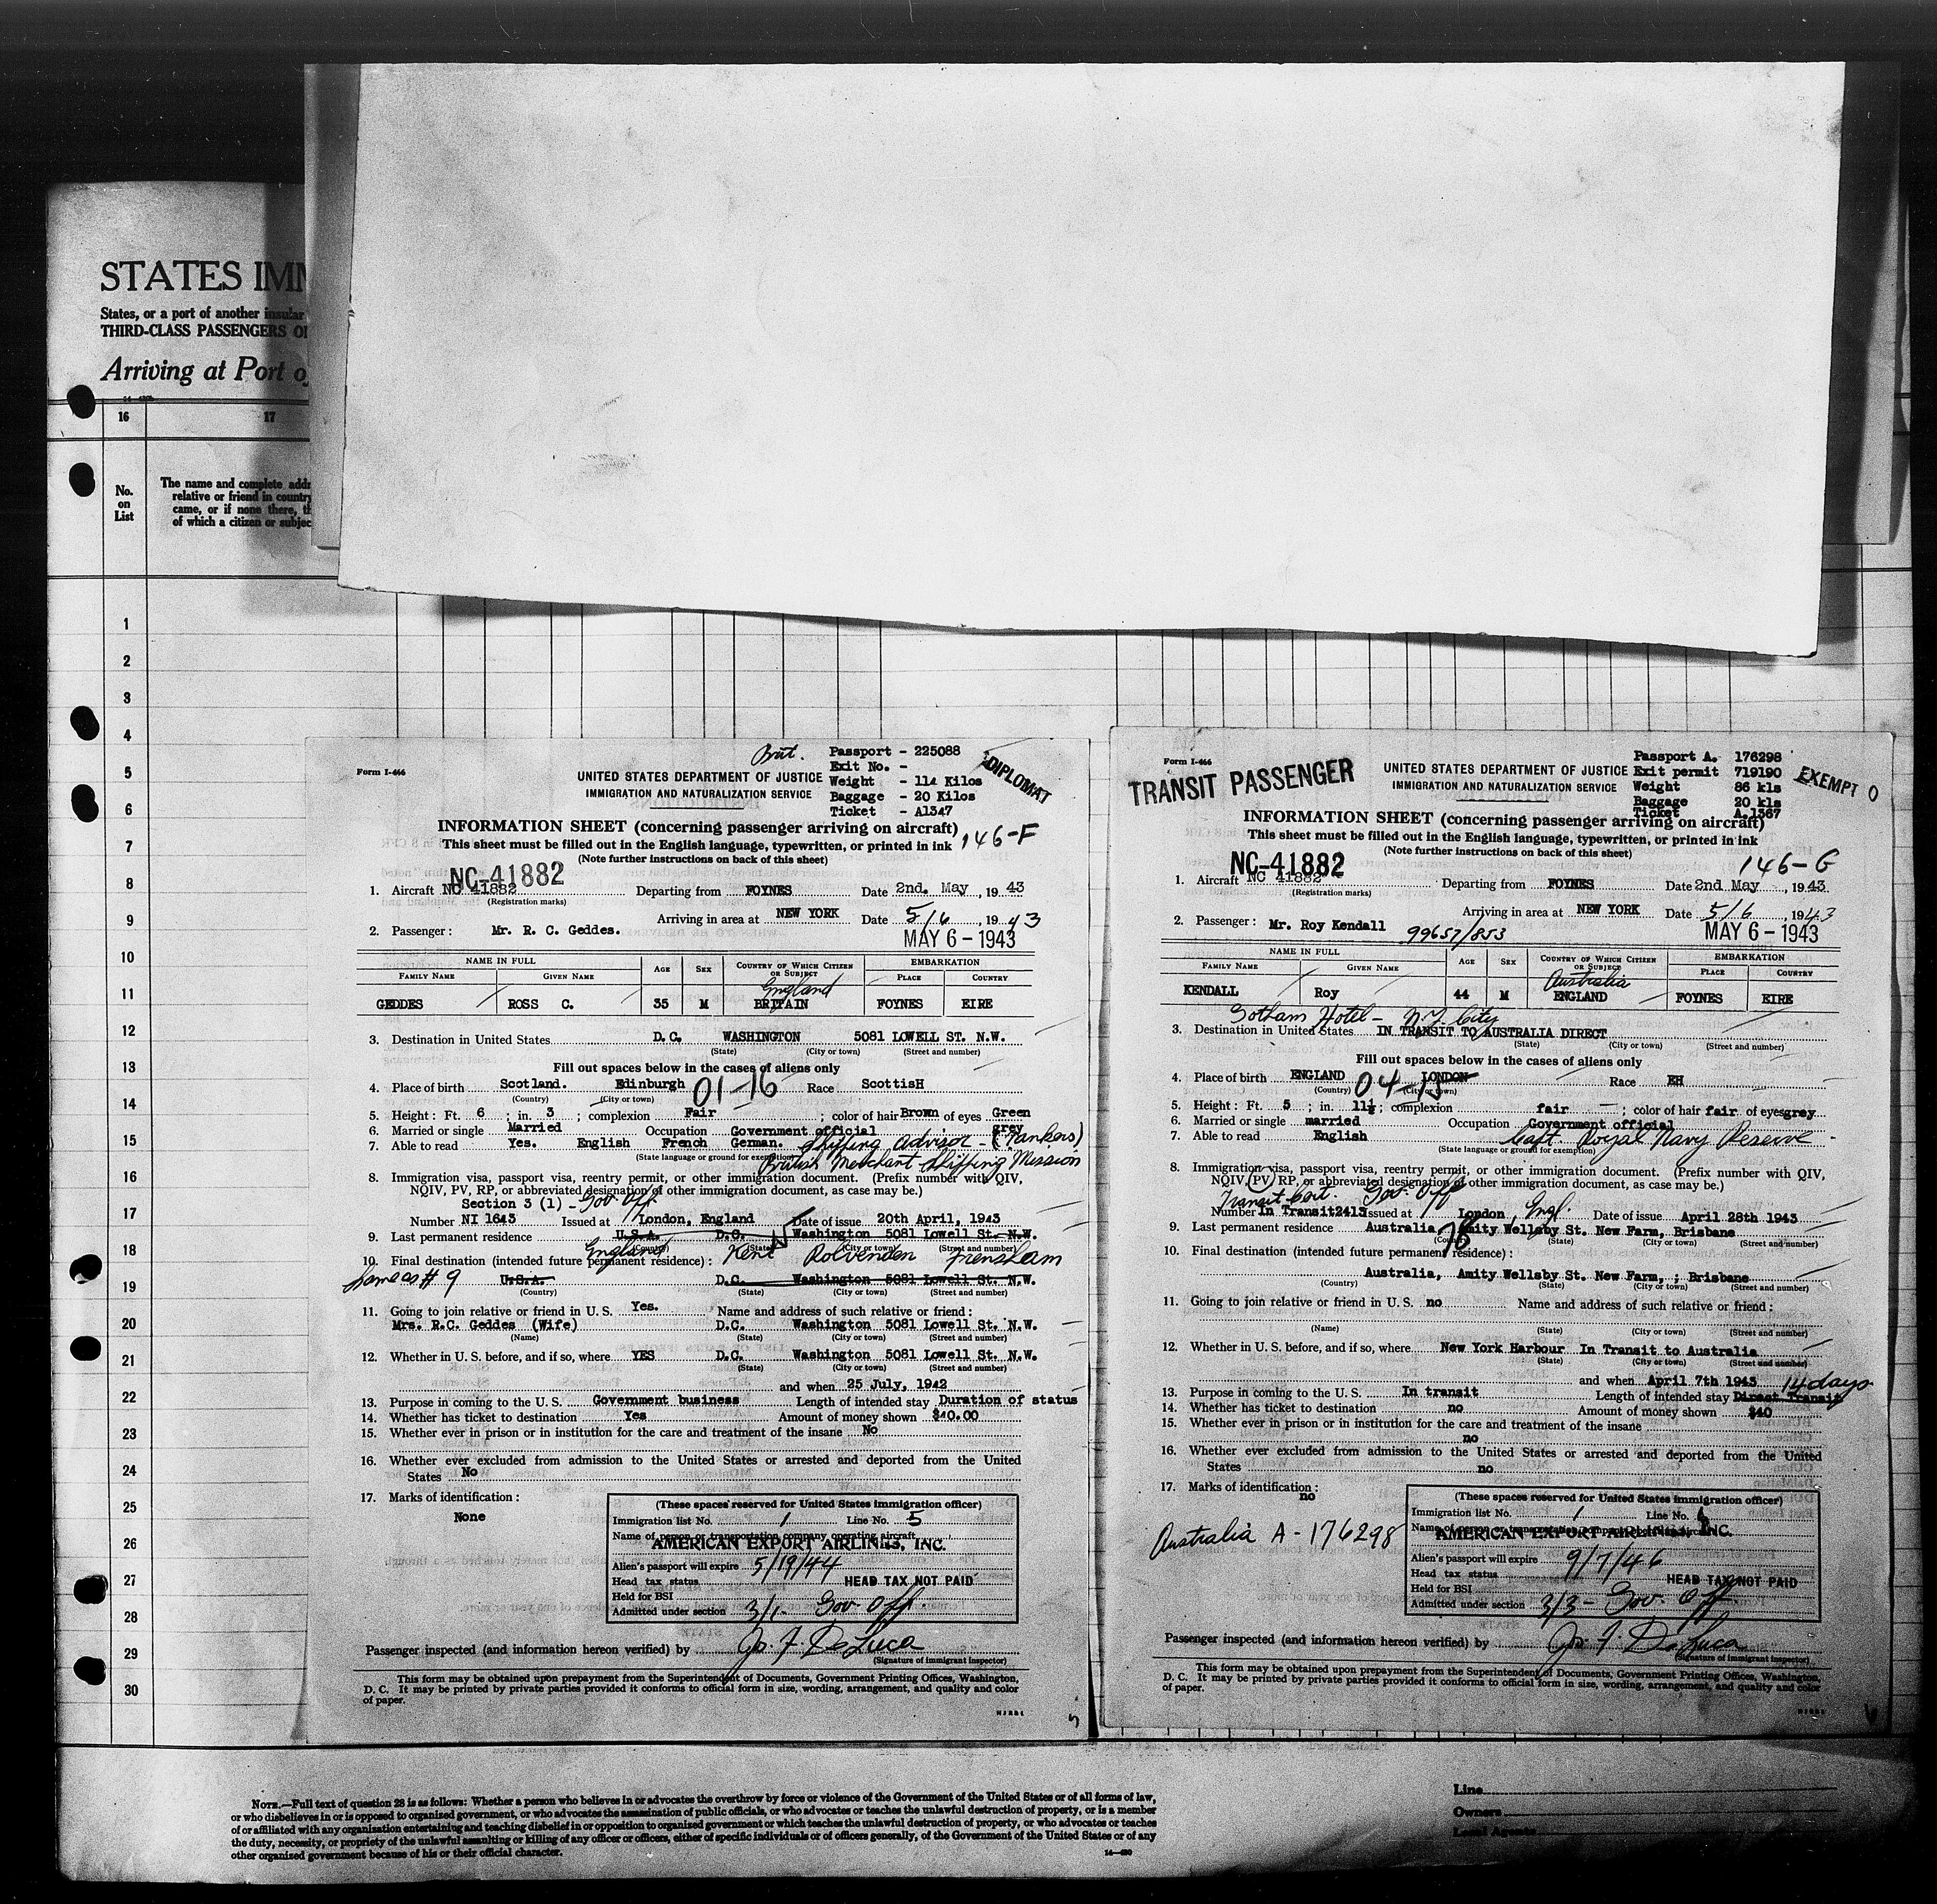 STATES IMM
States, or a port of another insular
THIRD-CLASS PASSENGERS O
Arriving at Port o
16 17
No. on List
The name and complete addr
relative or friend in country
came, or if none there, th
of which a citizen or subjec
1
2
3
4
5
6
7
8
9
10
11
12
13
14
15
16
17
18
19
20
21
22
23
24
25
26
27
28
29
30
Brit.
Passport - 225088
Form I-466
Exit No. -
DIPLOMAT
UNITED STATES DEPARTMENT OF JUSTICE
Weight - 112 Kilos
IMMIGRATION AND NATURALIZATION SERVICE
Baggage - 20 Kilos
Ticket - A1347
INFORMATION SHEET (concerning passenger arriving on aircraft)
146-F
This sheet must be filled out in the English language, typewritten, or printed in ink
(Note further instructions on back of this sheet)
NC-41882
1. Aircraft NC 41882 Departing from FOYNES Date 2nd. May, 1943
(Registration marks)
Arriving in area at NEW YORK Date 5/6, 1943
2. Passenger: Mr. R. C. Geddes.
MAY 6-1943
NAME IN FULL AGE SEX COUNTRY OF WHICH CITIZEN OR SUBJECT EMBARKATION
FAMILY NAME GIVEN NAME PLACE COUNTRY
England
GEDDES ROSS C. 35 M BRITAIN FOYNES EIRE
3. Destination in United States D.C. WASHINGTON 5081 LOWELL ST. N.W.
(State) (City or town) (Street and number)
Fill out spaces below in the cases of aliens only
4. Place of birth Scotland. Edinburgh 01-16 Race ScottisH
(Country) (City or town)
5. Height: Ft. 6; in. 3; complexion Fair; color of hair Brown of eyes Green grey
6. Married or single Married Occupation Government official
7. Able to read Yes. English French German. Shipping Advisor - (Tankers)
(State language or ground for exemption)
British Merchant Shipping Mission
8. Immigration visa, passport visa, reentry permit, or other immigration document. (Prefix number with QIV,
NQIV, PV, RP, or abbreviated designation of other immigration document, as case may be.)
Section 3 (1) - Gov. Off.
Number NI 1643 Issued at London, England Date of issue 20th April, 1943
9. Last permanent residence U.S.A. D.C. Washington 5081 Lowell St. N.W.
(Country) (State) (City or town) (Street and number)
England Kent Rolvenden Frensham
10. Final destination (intended future permanent residence):
Same as # 9 U.S.A. D.C. Washington 5081 Lowell St. N.W.
(Country) (State) (City or town) (Street and number)
11. Going to join relative or friend in U.S. Yes. Name and address of such relative or friend:
Mrs. R.C. Geddes (Wife) D.C. Washington 5081 Lowell St. N.W.
(Name) (State) (City or town) (Street and number)
12. Whether in U.S. before, and if so, where YES D.C. Washington 5081 Lowell St. N.W.
(State) (City or town) (Street and number)
and when 25 July, 1942
13. Purpose in coming to the U.S. Government business Length of intended stay Duration of status
14. Whether has ticket to destination Yes Amount of money shown $40.00
15. Whether ever in prison or in institution for the care and treatment of the insane No
16. Whether ever excluded from admission to the United States or arrested and deported from the United
States No
17. Marks of identification:
None
(These spaces reserved for United States immigration officer)
Immigration list No. 1 Line No. 5
Name of person or transportation company operating aircraft
AMERICAN EXPORT AIRLINES, INC.
Alien's passport will expire 5/19/44
Head tax status HEAD TAX NOT PAID
Held for BSI
Admitted under section 3/1 - Gov. Off.
Passenger inspected (and information hereon verified) by Jos. F. DeLuca
(Signature of immigrant inspector)
This form may be obtained upon prepayment from the Superintendent of Documents, Government Printing Offices, Washington,
D. C. It may be printed by private parties provided it conforms to official form in size, wording, arrangement, and quality and color
of paper.
5
Form I-466
TRANSIT PASSENGER
Passport A. 176298
UNITED STATES DEPARTMENT OF JUSTICE
Exit permit 719190
EXEMPT 0
IMMIGRATION AND NATURALIZATION SERVICE
Weight 86 kls
Baggage 20 kls
Ticket A.1367
INFORMATION SHEET (concerning passenger arriving on aircraft)
This sheet must be filled out in the English language, typewritten, or printed in ink
(Note further instructions on back of this sheet)
NC-41882
146-G
1. Aircraft NC 41882 Departing from FOYNES Date 2nd May, 1943
(Registration marks)
Arriving in area at NEW YORK Date 5/6, 1943
2. Passenger: Mr. Roy Kendall 99657/853
MAY 6-1943
NAME IN FULL AGE SEX COUNTRY OF WHICH CITIZEN OR SUBJECT EMBARKATION
FAMILY NAME GIVEN NAME PLACE COUNTRY
Australia
KENDALL Roy 44 M ENGLAND FOYNES EIRE
Gotham Hotel - N.Y. City
3. Destination in United States IN TRANSIT TO AUSTRALIA DIRECT
(State) (City or town) (Street and number)
Fill out spaces below in the cases of aliens only
4. Place of birth ENGLAND 04-15 LONDON Race EH
(Country) (City or town)
5. Height: Ft. 5; in. 11½; complexion fair; color of hair fair of eyes grey
6. Married or single married Occupation Government official
7. Able to read English Capt. Royal Navy Reserve -
(State language or ground for exemption)
8. Immigration visa, passport visa, reentry permit, or other immigration document. (Prefix number with QIV,
NQIV, PV, RP, or abbreviated designation of other immigration document, as case may be.)
Transit Cert. Gov. Off
Number In Transit2413 Issued at London, Engl. Date of issue April 28th 1943
9. Last permanent residence Australia, Amity Wellsby St. New Farm, Brisbane
(Country) (State) (City or town) (Street and number)
78
10. Final destination (intended future permanent residence):
Australia, Amity Wellsby St. New Farm,; Brisbane
(Country) (State) (City or town) (Street and number)
11. Going to join relative or friend in U.S. no Name and address of such relative or friend:
(Name) (State) (City or town) (Street and number)
12. Whether in U.S. before, and if so, where New York Harbour In Transit to Australia
(State) (City or town) (Street and number)
and when April 7th 1943 14 days
13. Purpose in coming to the U.S. In transit Length of intended stay Direct Transit
14. Whether has ticket to destination no Amount of money shown $40
15. Whether ever in prison or in institution for the care and treatment of the insane
no
16. Whether ever excluded from admission to the United States or arrested and deported from the United
States no
17. Marks of identification:
no
Australia A-176298
(These spaces reserved for United States immigration officer)
Immigration list No. 1 Line No. 6
AMERICAN EXPORT AIRLINES, INC.
Alien's passport will expire 9/7/46
Head tax status HEAD TAX NOT PAID
Held for BSI
Admitted under section 3/3 - Gov. Off
Passenger inspected (and information hereon verified) by Jos. F. DeLuca
(Signature of immigrant inspector)
This form may be obtained upon prepayment from the Superintendent of Documents, Government Printing Offices, Washington,
D. C. It may be printed by private parties provided it conforms to official form in size, wording, arrangement, and quality and color
of paper.
6
NOTE.—Full text of question 28 is as follows: Whether a person who believes in or advocates the overthrow by force or violence of the Government of the United States or of all forms of law,
or who disbelieves in or is opposed to organized government, or who advocates the assassination of public officials, or who advocates or teaches the unlawful destruction of property, or is a member
of or affiliated with any organization entertaining and teaching disbelief in or opposition to organized government or which teaches the unlawful destruction of property, or who advocates or teaches
the duty, necessity, or propriety of the unlawful assaulting or killing of any officer or officers, either of specific individuals or of officers generally, of the Government of the United States or of any
other organized government because of his or their official character.
Line
Owners
Local Agents